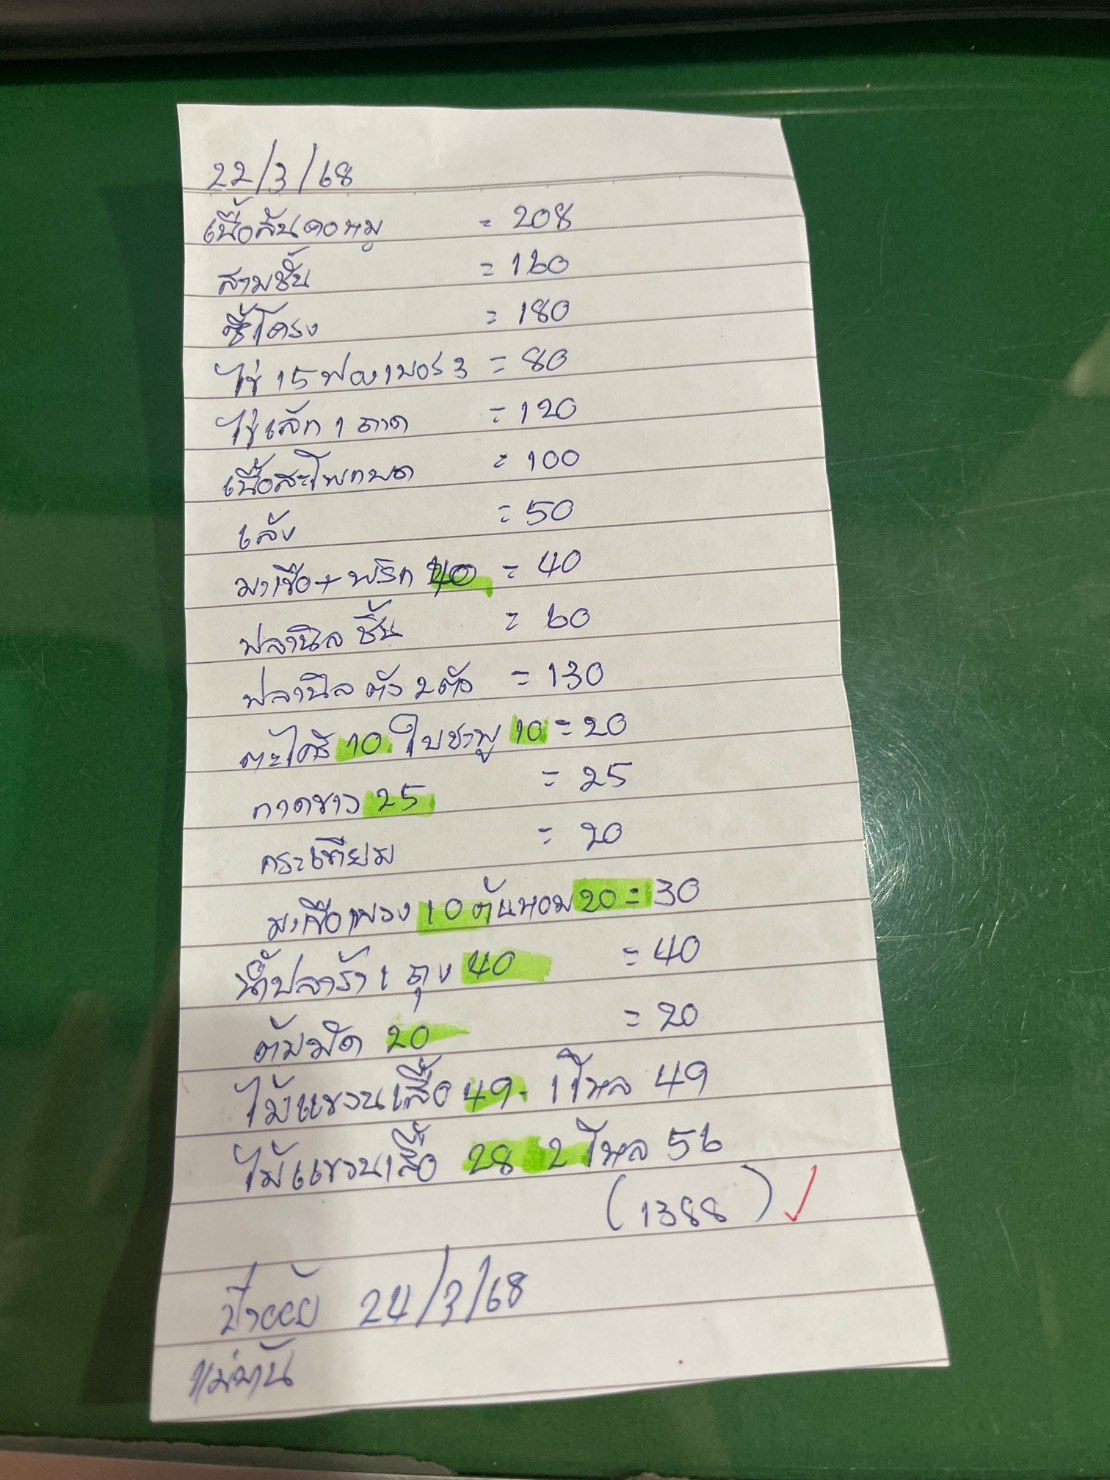 22/3/68
เนื้อสันคอหมู = 208
สามชั้น = 160
ซี่โครง = 180
ไข่ 15 ฟองเบอร์ 3 = 80
ไข่เล็ก 1 ถาด = 120
เนื้อสะโพกบด = 100
เล้ง = 50
มะเขือ + พริก 40 = 40
ปลานิล ชิ้น = 60
ปลานิล ตัว 2 ตัว = 130
ตะไคร้ 10 ใบชะพู 10 = 20
กาดขาว 25 = 25
กระเทียม = 20
มะเขือพวง 10 ต้นหอม 20 = 30
น้ำปลาร้า 1 ถุง 40 = 40
ต้มมัด 20 = 20
ไม้แขวนเสื้อ 49. 1 โหล 49
ไม้แขวนเสื้อ 28 2 โหล 56
(1388)
24/3/68